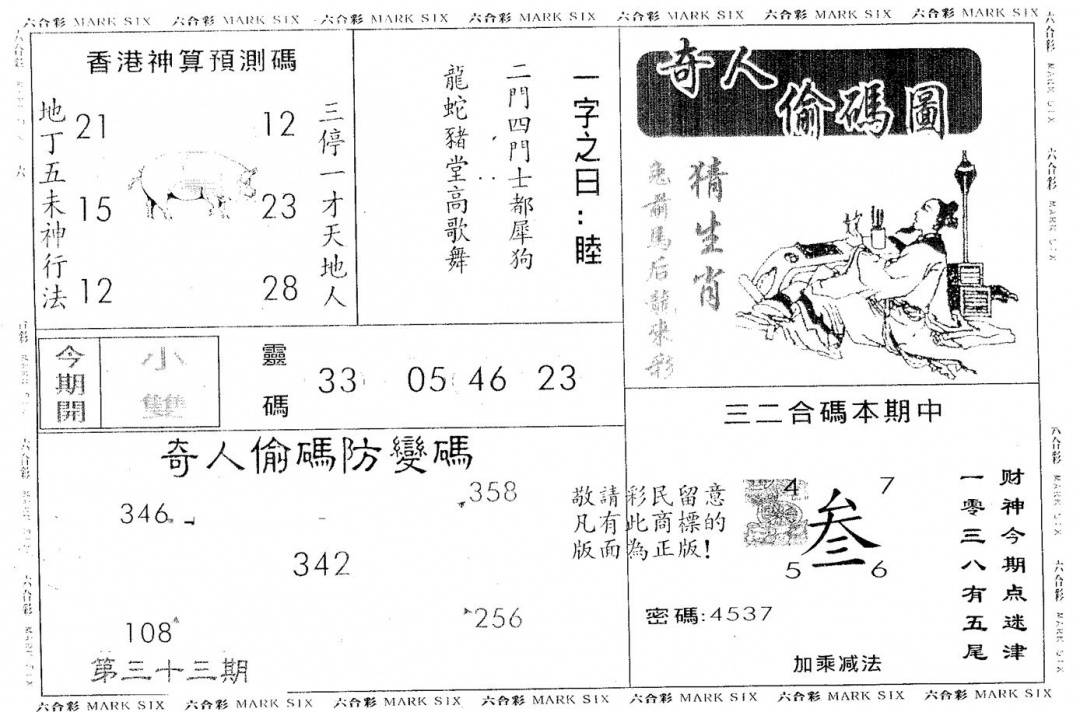 六合彩 MARK SIX 六合彩 MARK SIX 六合彩 MARK SIX 六合彩 MARK SIX 六合彩 MARK SIX 六合彩 MARK SIX 六合彩 MARK SIX
香港神算預測碼
地丁五未神行法
21 12
15 23
12 28
三停一才天地人
一字之曰:睦
二門四門士都犀狗
龍蛇豬堂高歌舞
奇人偷碼圖
猜生肖
兔前馬后龍來彩
今期開
小雙
靈碼
33 05 46 23
三二合碼本期中
奇人偷碼防變碼
346 358
342
108 256
第三十三期
敬請彩民留意
凡有此商標的
版面為正版!
4 7
叁
5 6
密碼:4537
加乘减法
财神今期点迷津
一零三八有五尾
六合彩 MARK SIX 六合彩 MARK SIX 六合彩 MARK SIX 六合彩 MARK SIX 六合彩 MARK SIX 六合彩 MARK SIX 六合彩 MARK SIX